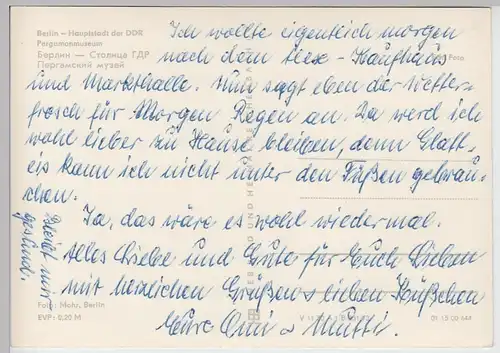 Berlin – Hauptstadt der DDR
Pergamonmuseum
Берлин — Столица ГДР
Пергамский музей
Foto
Ich wollte eigentlich morgen
nach dem Alex-Kaufhaus
und Markthalle. Nun sagt eben der Wetter-
frosch für Morgen Regen an. Da werd ich
wohl lieber zu Hause bleiben, denn Glatt-
eis kann ich nicht unter den Füßen gebrau-
chen.
Ja, das wäre es wohl wiedermal.
Alles Liebe und Gute für Euch Lieben
mit herzlichen Grüßen u lieben Küßchen
Eure Omi u Mutti.
Bleibt mir
gesund.
Foto: Mohr, Berlin
EVP: 0,20 M
V 11 20